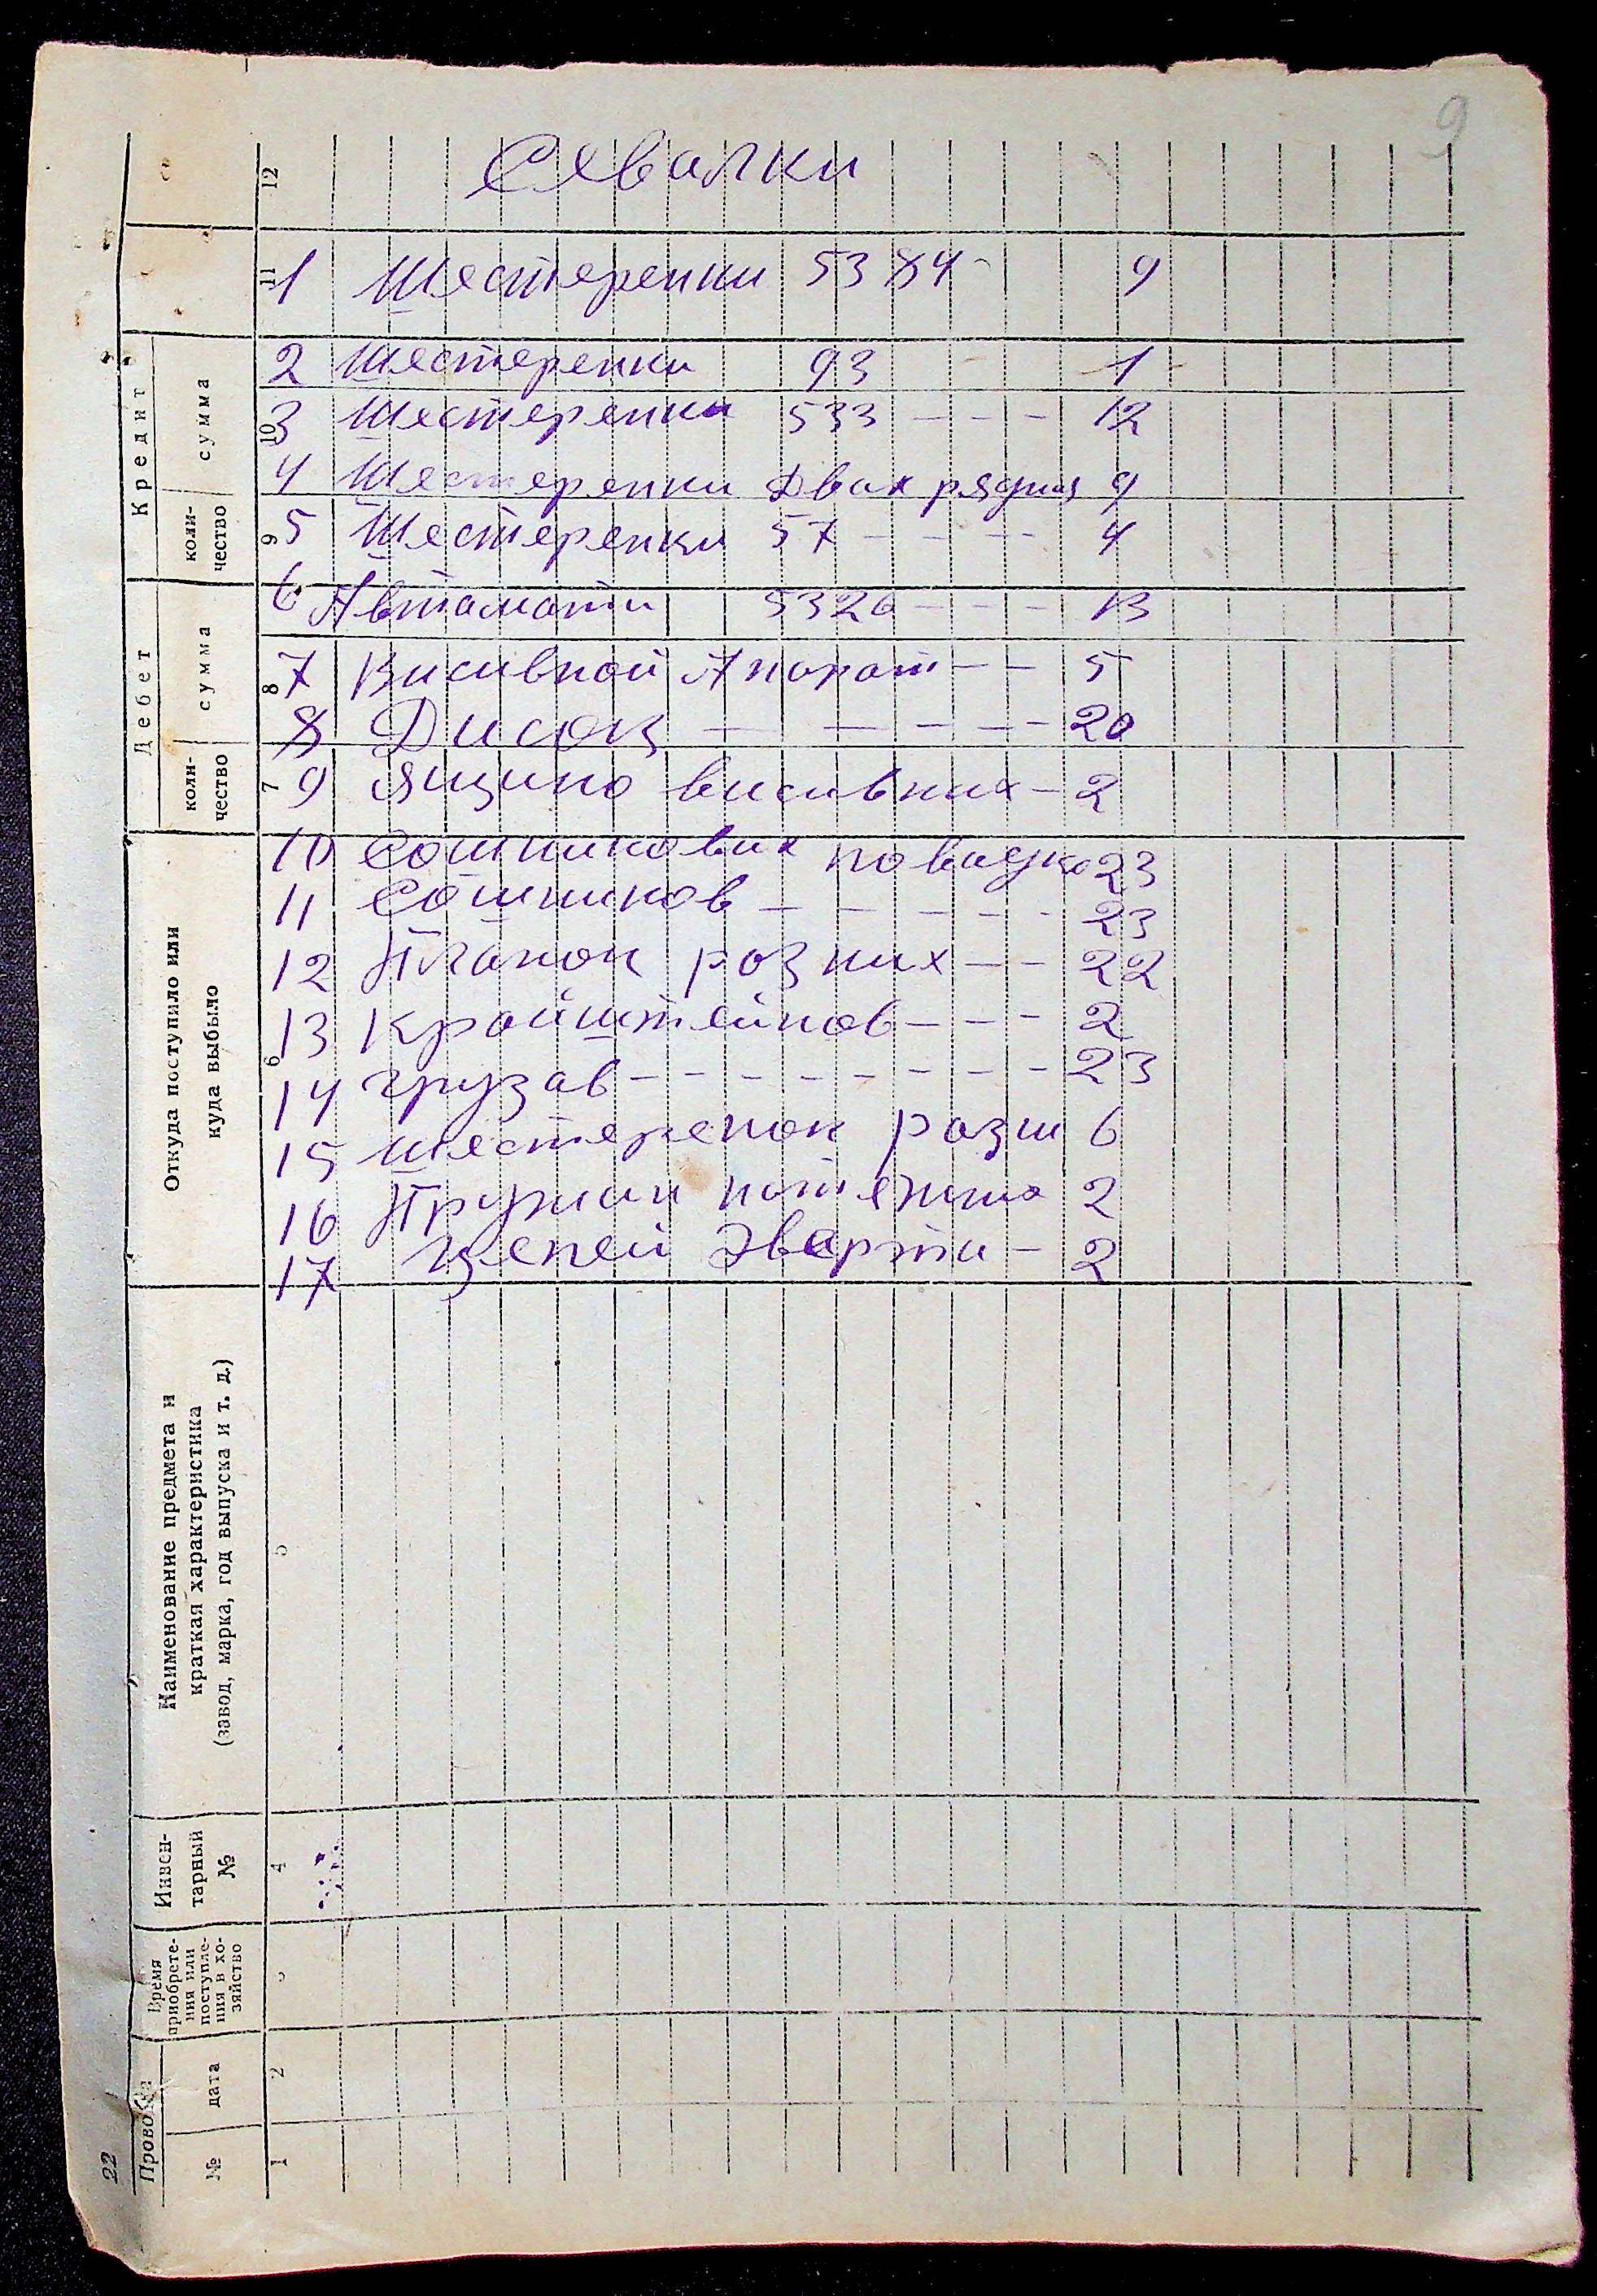 9
Сеялки
1 Шестеренки 5384 - 9
2 Шестеренки 93 - 1
3 Шестеренки 533 - - - 12
4 Шестеренки Двах рядних 9
5 Шестеренки 57 - - - - 4
6 Автамати 5326 - - - 13
7 Висивной Апарат - - 5
8 Дисок - - - - - 20
9 Ящико висивних - 2
10 Сошникових поводко 23
11 Сошников - - - - - - 23
12 Планок розних - - 22
13 Кройштейнов - - - 2
14 грузав - - - - - - - - - 23
15 шестеренок розн 6
16 Пружин 2
17 Цепей Эверти - 2
22
Проводка
№
дата
Время приобрете-
ния или
поступле-
ния в хо-
зяйство
Инвен-
тарный
№
Наименование предмета и
краткая характеристика
(завод, марка, год выпуска и т. д.)
Откуда поступило или
куда выбыло
Дебет
коли-
чество
сумма
Кредит
коли-
чество
сумма
1 2 3 4 5 6 7 8 9 10 11 12